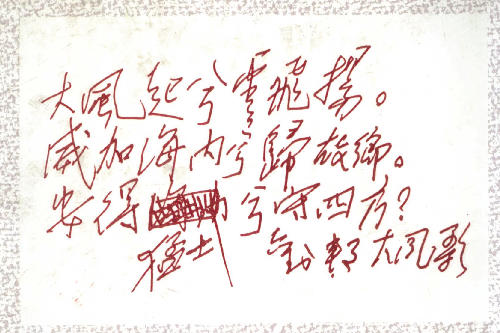 大風起兮雲飛揚。
威加海內兮歸故鄉。
安得兮守四方？
猛士 劉邦大风歌